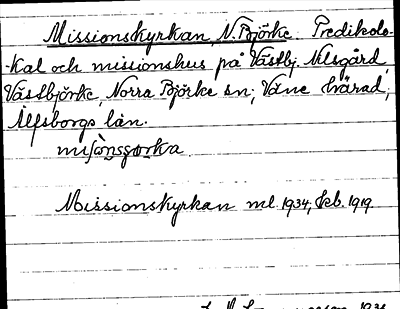 Missionskyrkan, N. Björke. Predikolo-
kal och missionshus på Västbj. Nilsgård,
Västbjörke, Norra Björke sn, Väne härad,
Älfsborgs län.
Missionskyrkan ml 1934, Feb. 1919
1934